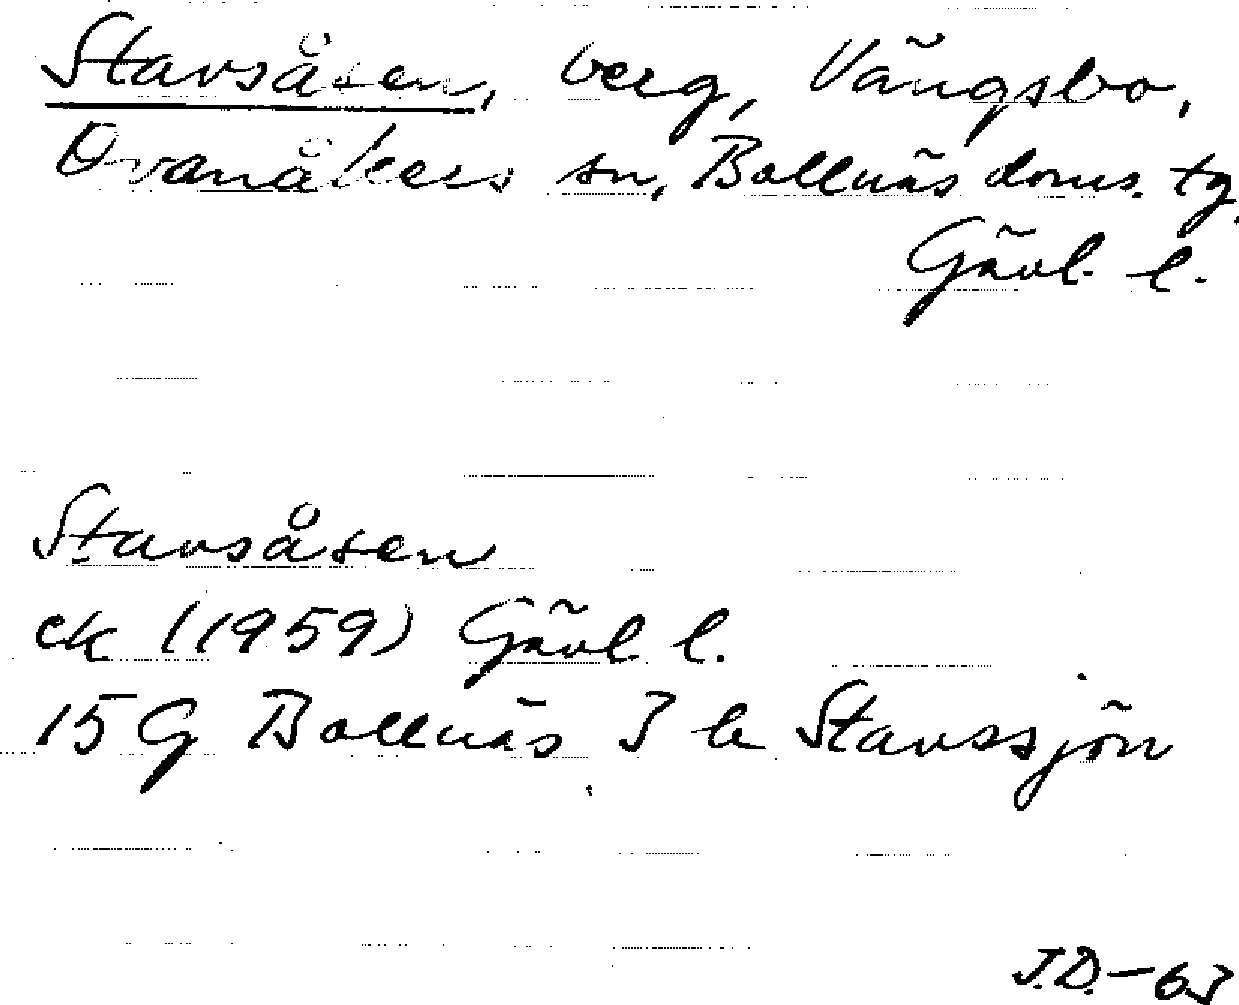 Stavsåsen, berg, Vängsbo,
Ovanåkers sn, Bollnäs doms. tg.
Gävl. l.
Stavsåsen
ek (1959) Gävl l.
15 G Bollnäs 3 b Stavssjön
J.D.-63